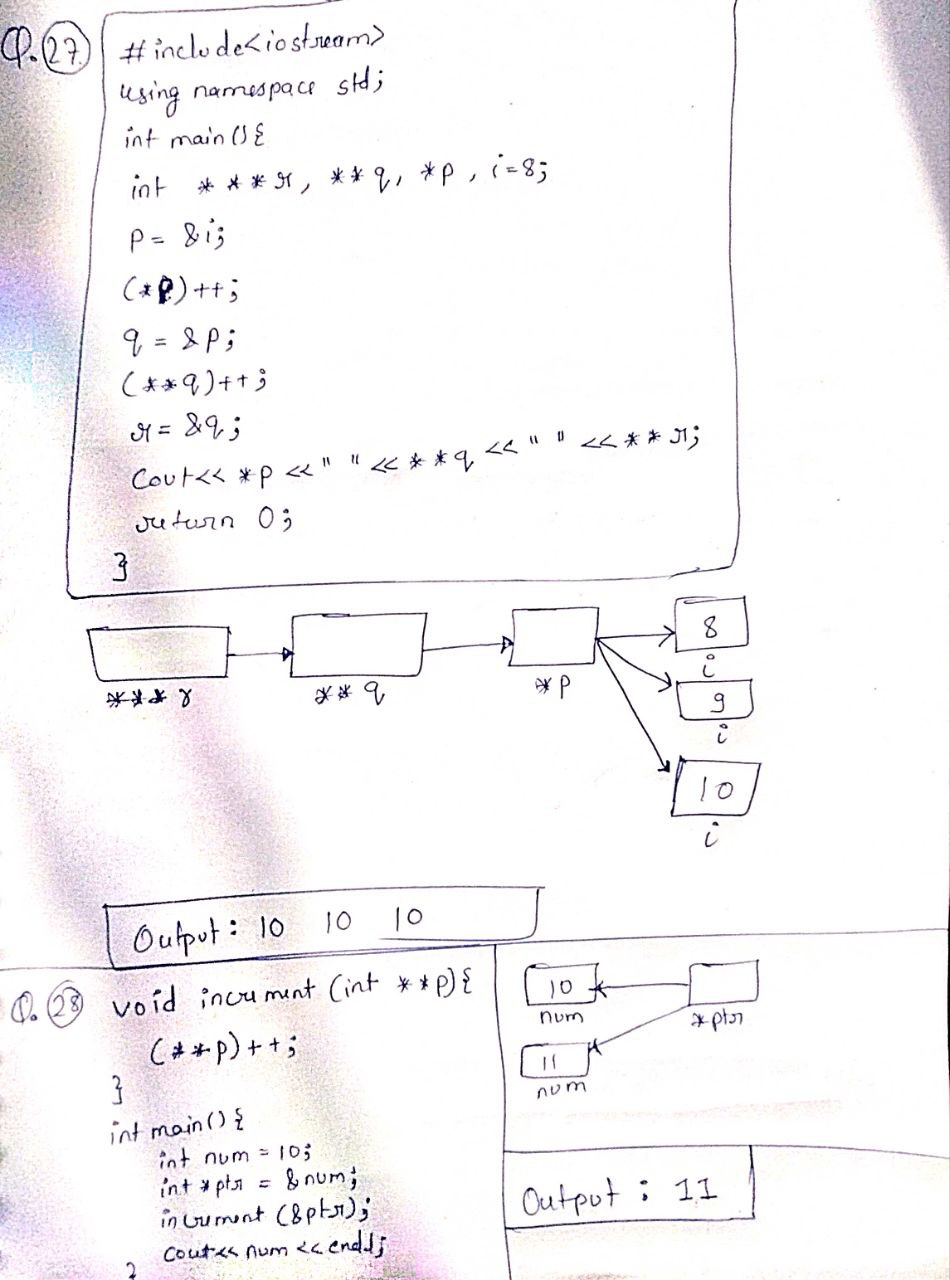 Q. 27
#include<iostream>
using namespace std;
int main(){
int ***r, **q, *p, i=8;
p= &i;
(*p)++;
q = &p;
(**q)++;
r= &q;
Cout<< *p <<" "<< **q << " " << **r;
return 0;
}
8
i
***r **q *p
9
i
10
i
Output: 10 10 10
Q. 28 void increment (int **p){
(**p)++;
}
int main(){
int num = 10;
int *ptr = &num;
increment (&ptr);
cout<< num << endl;
}
10
num *ptr
11
num
Output : 11